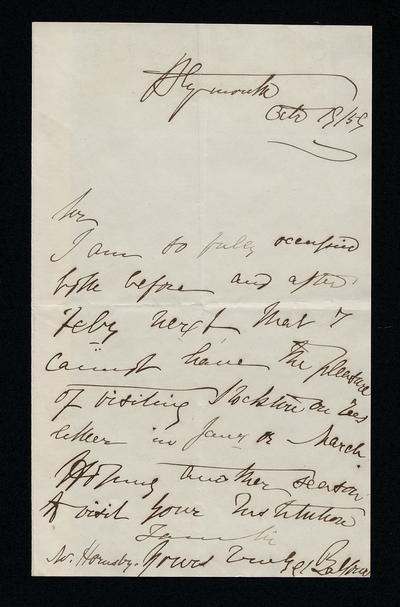 Plymouth
Octr 19/59
Sir
I am so fully occupied
both before and after
Feby next that I
cannot have the pleasure
of visiting Stockton on Tees
either in Jany or March
Hoping another season
to visit your Institution
I am Sir
Mr. Hornsby. Yours truly